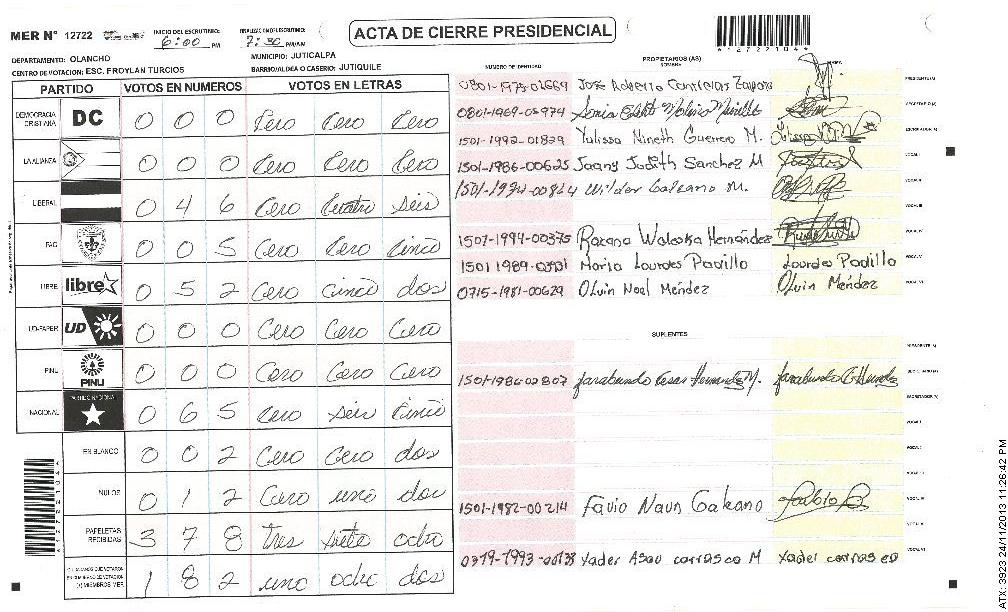 MER N° 12722
INICIO DEL ESCRUTINIO: 6:00 PM
FINALIZACION DE ESCRUTINIO: 7:30 PM/AM
ACTA DE CIERRE PRESIDENCIAL
DEPARTAMENTO: OLANCHO
MUNICIPIO: JUTICALPA
CENTRO DE VOTACION: ESC. FROYLAN TURCIOS
BARRIO/ALDEA O CASERIO: JUTIQUILE
PARTIDO VOTOS EN NUMEROS VOTOS EN LETRAS
DEMOCRACIA CRISTIANA DC 0 0 0 Cero Cero Cero
LA ALIANZA 0 0 0 Cero Cero Cero
LIBERAL 0 4 6 Cero Cuatro seis
PAC 0 0 5 Cero Cero Cinco
LIBRE libre 0 5 2 Cero cinco dos
UD-FAPER UD 0 0 0 Cero Cero Cero
PINU PINU 0 0 0 Cero Cero Cero
NACIONAL PARTIDO NACIONAL 0 6 5 Cero seis Cinco
EN BLANCO 0 0 2 Cero Cero dos
NULOS 0 1 2 Cero uno dos
PAPELETAS RECIBIDAS 3 7 8 tres siete ocho
(+) MIEMBROS MER 1 8 2 uno ocho dos
NUMERO DE IDENTIDAD
PROPIETARIOS (AS)
NOMBRE
FIRMA
0801-1973-02669 José Roberto Contreras PRESIDENTE (A)
0801-1969-05974 Sonia SECRETARIO (A)
1501-1992-01829 Yalissa Nineth Guerrero M. ESCRUTADOR (A)
1501-1986-00625 Joany Judith Sanchez M VOCAL I
1501-1974-00824 Wilder Galeano M. VOCAL II
VOCAL III
1501-1994-00375 Roxana Waleska Hernández VOCAL IV
1501 1989-03931 Maria Lourdes Padillo Lourdes Padillo VOCAL V
0715-1981-00629 Olvin Noel Méndez Olvin Méndez VOCAL VI
SUPLENTES
PRESIDENTE (A)
1501-1986-02807 Farabundo Cesar Hernandez M. SECRETARIO (A)
ESCRUTADOR (A)
VOCAL I
VOCAL II
VOCAL III
1501-1982-00214 Favio Naun Galeano VOCAL IV
VOCAL V
0319-1993-00138 Xader Asau carrasco M Xader carrasco VOCAL VI
ATX: 3923 24/11/2013 11:26:42 PM